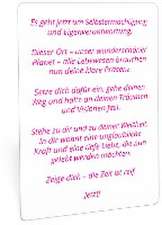 Es geht jetzt um Selbstermächtigung
und Eigenverantwortung.
Dieser Ort – unser wunderschöner
Planet – alle Lebewesen brauchen
nun deine klare Präsenz.
Setze dich dafür ein, gehe deinen
Weg und halte an deinen Träumen
und Visionen fest.
Stehe zu dir und zu deiner Weisheit.
In dir wohnt eine unglaubliche
Kraft und eine tiefe Liebe, die nun
gelebt werden möchten.
Zeige dich – die Zeit ist reif.
Jetzt!